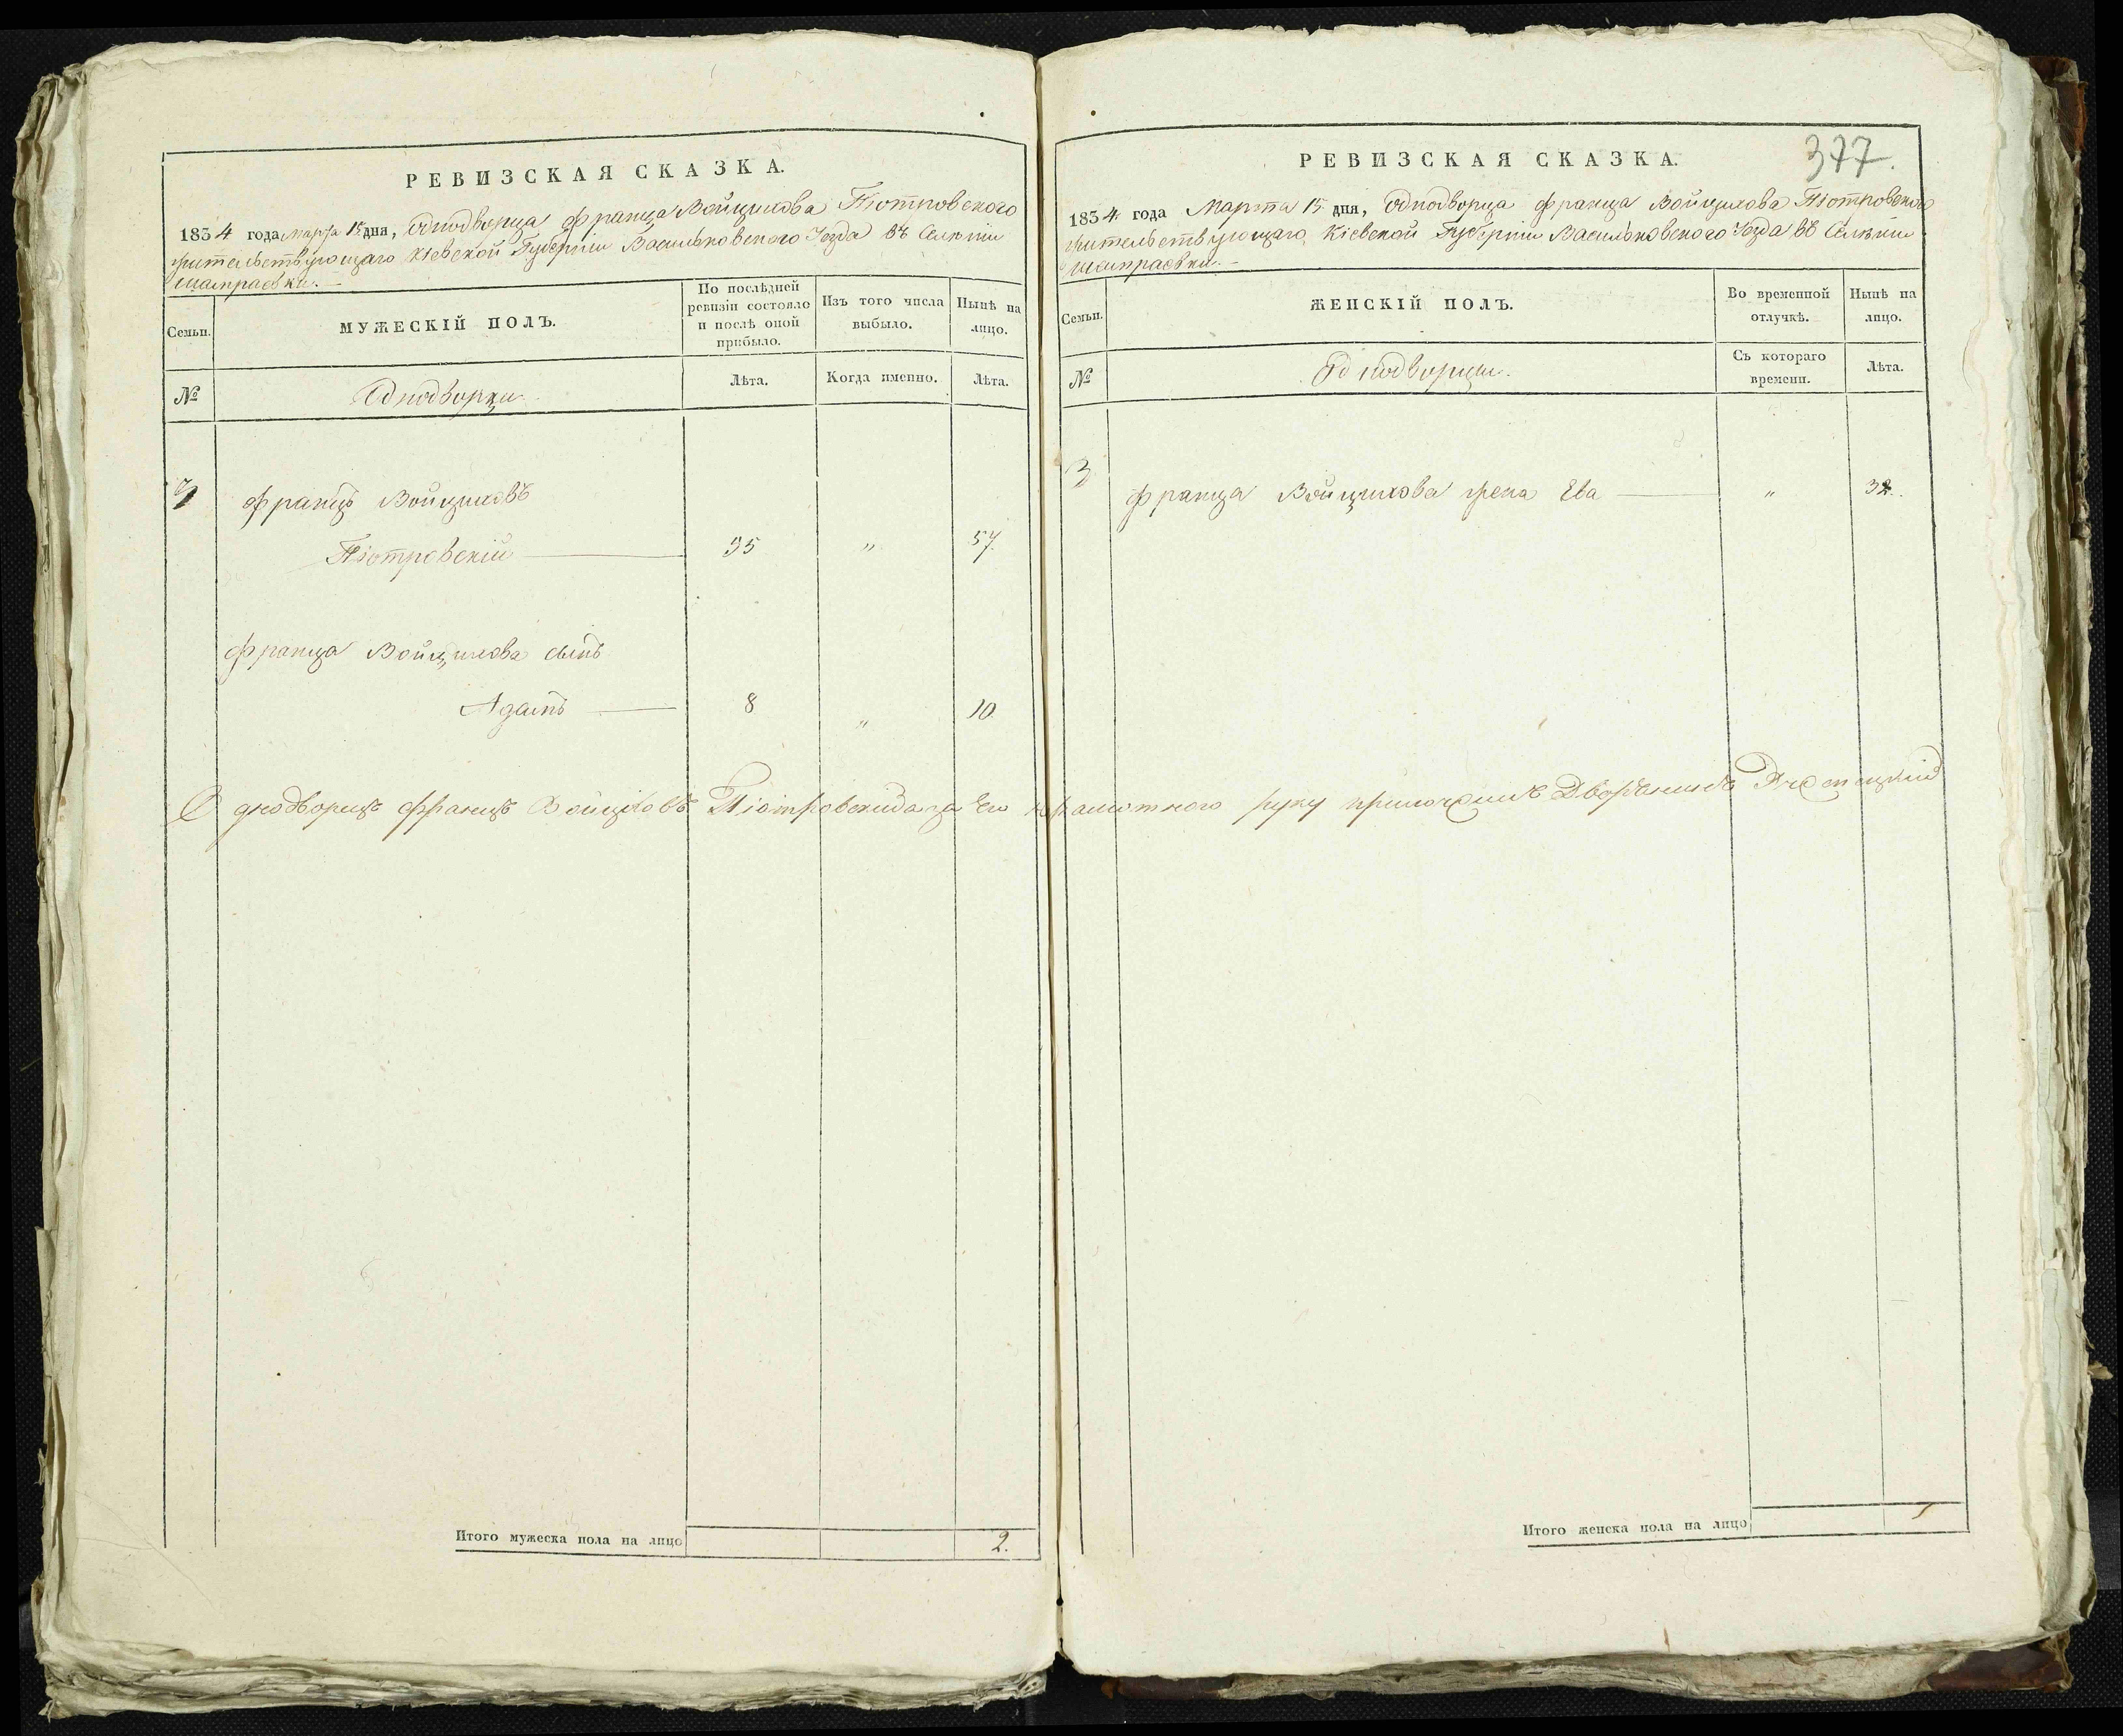 РЕВИЗСКАЯ СКАЗКА.
1834 года марта 15 дня, однодворца Франца Войцикова Піотровского
жительствующаго Кіевской Губерніи Васильковского Уезда въ Селеніи
Шапраевки.
Семьи.
МУЖЕСКІЙ ПОЛЪ.
По послѣдней ревизіи состояло и послѣ оной прибыло.
Изъ того числа выбыло.
Нынѣ на лицо.
№
Однодворцы.
Лѣта.
Когда именно.
Лѣта.
3 Францъ Войциковъ
Піотровскій 35 " 57.
Франца Войцикова сынъ
Адамъ 8 " 10.
Итого мужеска пола на лицо 2.
377.
РЕВИЗСКАЯ СКАЗКА.
1834 года Марта 15 дня, однодворца Франца Войцикова Піотровского
жительствующаго Кіевской Губерніи Васильковского Уезда въ Селеніи
Шапраевки.
Семьи.
ЖЕНСКІЙ ПОЛЪ.
Во временной отлучкѣ.
Нынѣ на лицо.
№
Однодворцы.
Съ котораго времени.
Лѣта.
3 Франца Войцикова жена Ева " 32.
Однодворецъ Францъ Войциковъ Піотровскій а за его неграмотного руку приложилъ Дворянинъ
Итого женска пола на лицо 1